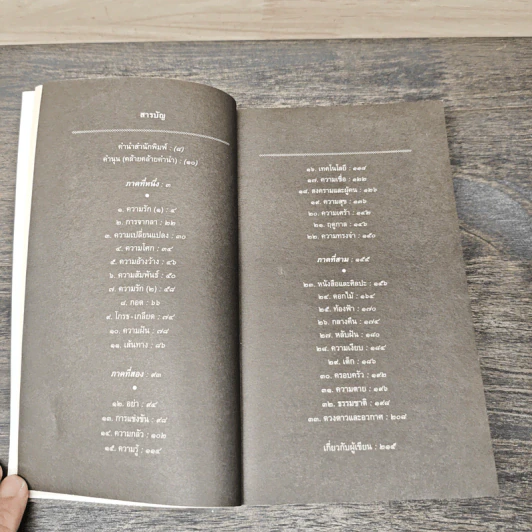 สารบัญ
คำนำสำนักพิมพ์ : (๘)
คำนุน (คล้ายคล้ายคำนำ) : (๑๐)
ภาคที่หนึ่ง : ๓
๑. ความรัก (๑) : ๔
๒. การจากลา : ๒๒
๓. ความเปลี่ยนแปลง : ๓๐
๔. ความโศก : ๓๔
๕. ความอ้างว้าง : ๔๖
๖. ความสัมพันธ์ : ๕๐
๗. ความรัก (๒) : ๕๘
๘. กอด : ๖๖
๙. โกรธ-เกลียด : ๗๔
๑๐. ความฝัน : ๗๘
๑๑. เส้นทาง : ๘๖
ภาคที่สอง : ๙๓
๑๒. อย่า : ๙๔
๑๓. การแข่งขัน : ๙๘
๑๔. ความกลัว : ๑๐๒
๑๕. ความรู้ : ๑๑๔
๑๖. เทคโนโลยี : ๑๑๙
๑๗. ความเชื่อ : ๑๒๒
๑๘. สงครามและผู้คน : ๑๒๖
๑๙. ความสุข : ๑๓๖
๒๐. ความเศร้า : ๑๔๒
๒๑. ฤดูกาล : ๑๔๖
๒๒. ความทรงจำ : ๑๕๐
ภาคที่สาม : ๑๕๕
๒๓. หนังสือและศิลปะ : ๑๕๖
๒๔. ดอกไม้ : ๑๖๔
๒๕. ท้องฟ้า : ๑๗๐
๒๖. กลางคืน : ๑๗๔
๒๗. หลับฝัน : ๑๘๐
๒๘. ความเงียบ : ๑๘๔
๒๙. เด็ก : ๑๘๖
๓๐. ครอบครัว : ๑๙๒
๓๑. ความตาย : ๑๙๖
๓๒. ธรรมชาติ : ๑๙๘
๓๓. ดวงดาวและอวกาศ : ๒๐๘
เกี่ยวกับผู้เขียน : ๒๑๕